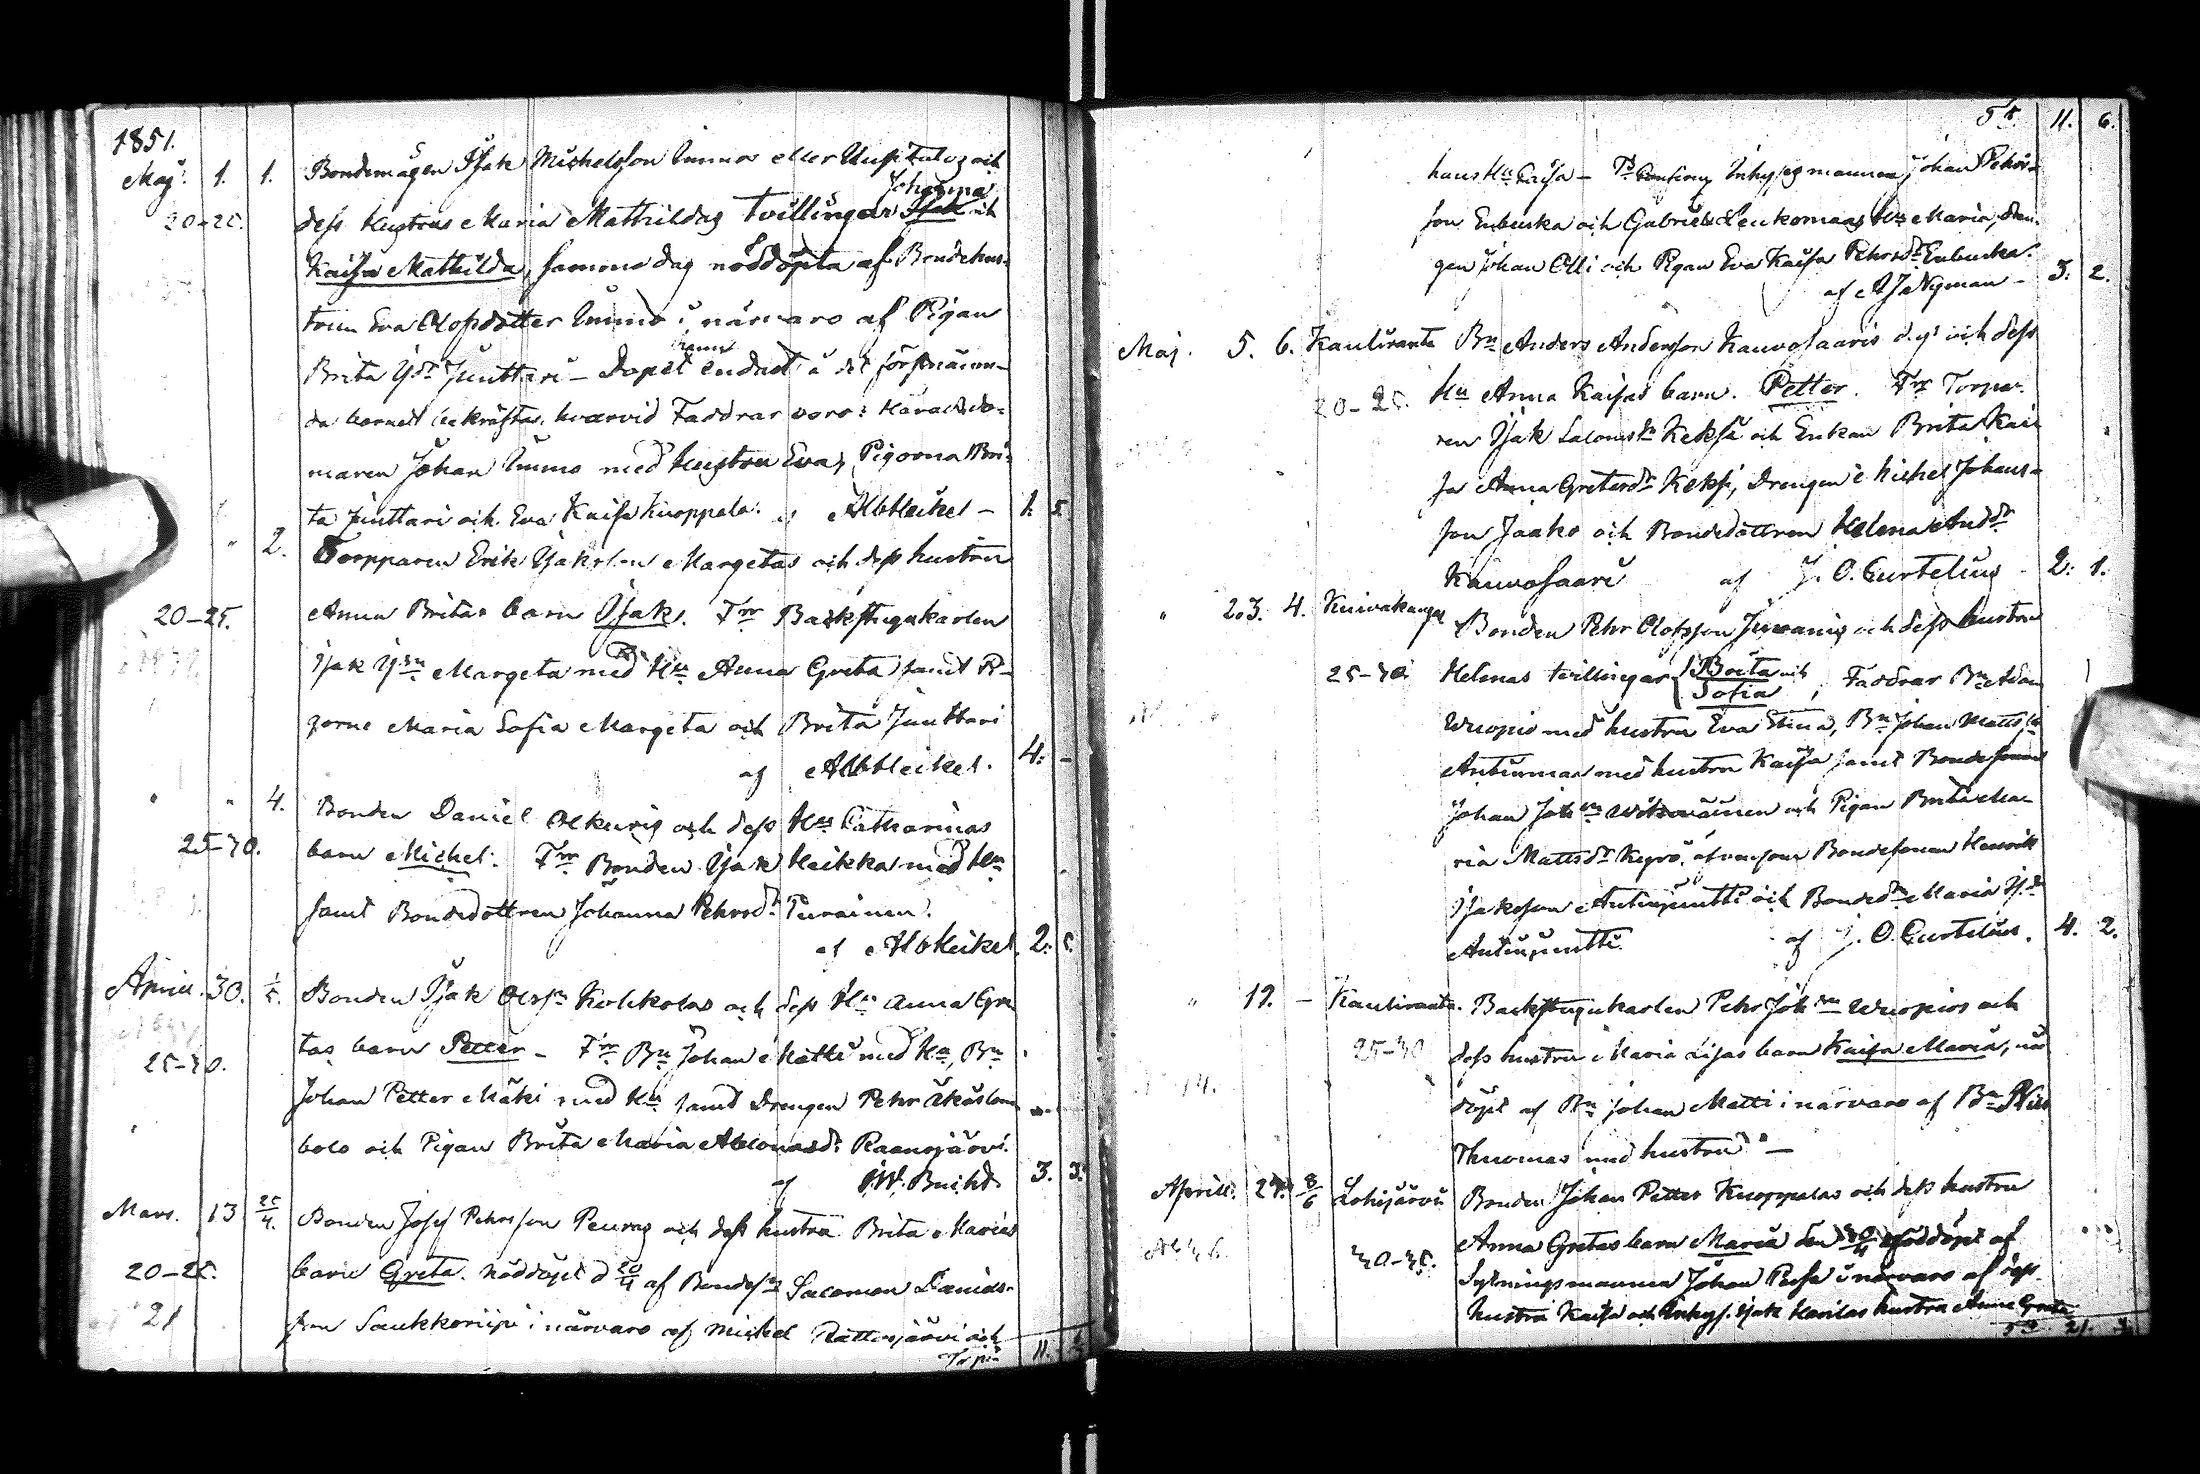 1851.
Maj. 1. 1. Bondemågen Isak Michelsson Immos eller Uusitalos och
Johanna
20–25. dess hustrus Maria Mathildas tvillingar Isak och
Kaisa Mathilda, samma dag nöddöpta af Bondehus-
trun Eva Olofsdotter Immo i närvaro af Pigan
Brita Isdr Junttari – Dopet endast å det förstnämn-
da barnet bekräftas, hvarvid Faddrar voro: Häradsdo-
maren Johan Immo med hustru Eva, Pigorna Bri-
ta Junttari och Eva Kaisa Kuoppala. af Alb Heikel – 1. 5.
" 2. Torpparen Erik Isaksson Margetas och dess hustru
20–25. Anna Britas barn Isak. Frr Backstugukarlen
Isak Isson Margeta med Hu Anna Greta samt Pi-
gorne Maria Sofia Margeta och Brita Junttari
af Alb Heikel. 4. –
" " 4. Bonden Daniel och dess Hus Catharinas
25–30. barn Michel. Frr Bonden Isak Heikka med Hu
samt Bondedottren Johanna Pehrsdr Turainen.
af Alb Heikel. 2.
April. 30. 1/5. Bonden Isak Olofsn Kohkolas och dess Hus Anna Gre-
25–30. tas barn Petter – Frr Bn Johan Matti med Hu, Bn
Johan Petter Mäki med Hu samt Drengen Pehr Äkäslom-
bolo och Pigan Brita Maria Raanojärvi.
af 3. 3.
Mars. 13 25/4. Bonden Josef Pehrsson Peuras och dess hustru Brita Marias
20–25. barn Greta. Nöddöpt d 20/4 af Bondesn Salomon Daniels-
21 son Saukkoriipi i närvaro af Michel Rattosjärvi och
11. 6.
5 11. 6.
hans Hu Kaisa – Inhysesmannen Johan Pehrs-
son Enbuska och Gabriel Leukomaas Hu Maria, Dren-
gen Johan Olli och Pigan Eva Kaisa Pehrsdr Enbuska.
af A J Nyman – 3. 2.
Maj. 5. 6. Kauliranta Bn Anders Andersson Kauvosaaris d.y. och dess
20–25. Hu Anna Kaisas barn. Petter. Frr Torpa-
ren Isak Salomsn Keksi och Enkan Brita Kai-
sa Anna Gretasdr Keksi, Drengen Michel Johans-
son Jaako och Bondedottren Helena Andsdr
Kauvosaari af J. O. Curtelius – 2. 1.
" 23. 4. Kuivakangas Bonden Pehr Olofsson Juvanis och dess hustru
25–30. Helenas tvillingar Brita och Sofia, Faddrar Bn Adam
Wuopio med hustru Eva Stina, Bn Johan Mattsn
Antinmaa med hustru Kaisa samt Bondesonen
Johan Johsn och Pigan Brita Ma-
ria Mattsdr Kyrö, äfvensom Bondesonen Henrik
Isaksson Antinjuntti och Bondedr Maria Isdr
Antinjuntti. af J. O. Curtelius. 4. 2.
" 19. – Kauliranta. Backstugukarlen Pehr Johsn Wuopios och
25–30 dess hustru Maria Lisas barn Kaisa Maria, nöd-
döpt af Bn Johan Matti i närvaro af Bn Nils
Thuomas med hustru –
April. 24. 8/6 Lohijärvi Bonden Johan Petter Kuoppalas och dess hustru
30–35. Anna Gretas barn Maria den 30/4 nöddöpt af
Sytningsmannen Johan i närvaro af dess
hustru Kaisa och Inhys. Isak hustru Anna Greta
21.